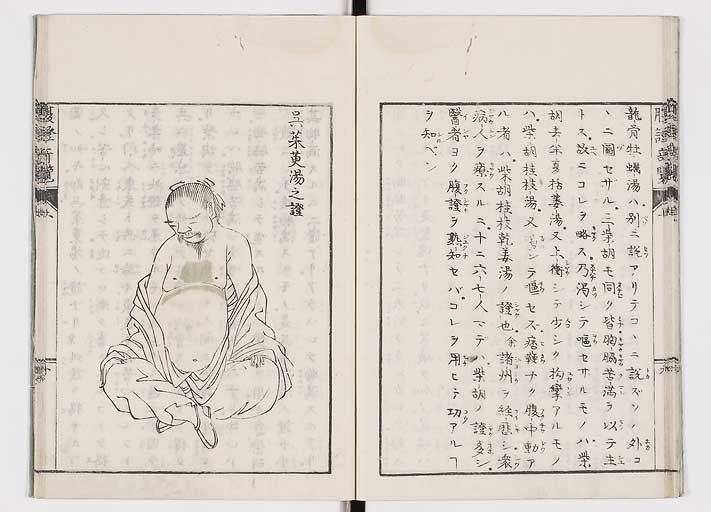 龍骨牡蠣湯ハ別ニ説アリテコヽニ説ズソノ外コ
ヽニ圖セサル三柴胡モ同ク皆胸脇苦満ヲ以テ主
トス故ニコレヲ略ス乃渇シテ嘔セサルモノハ柴
胡去半夏栝蔞湯又上衝シテ少シク拘攣アルモノ
ハ柴胡桂枝湯又渇シテ嘔セズ痞鞕ナク腹中動ア
ル者ハ柴胡桂枝乾姜湯ノ證也余諸州ヲ経歴シ衆
病人ヲ療スルニ十ニ六七人マテハ柴胡ノ證多シ
醫者ヨク腹證ヲ熟知セバコレヲ用ヒテ功アルヿ
ヲ知ベシ
呉茱萸湯之證